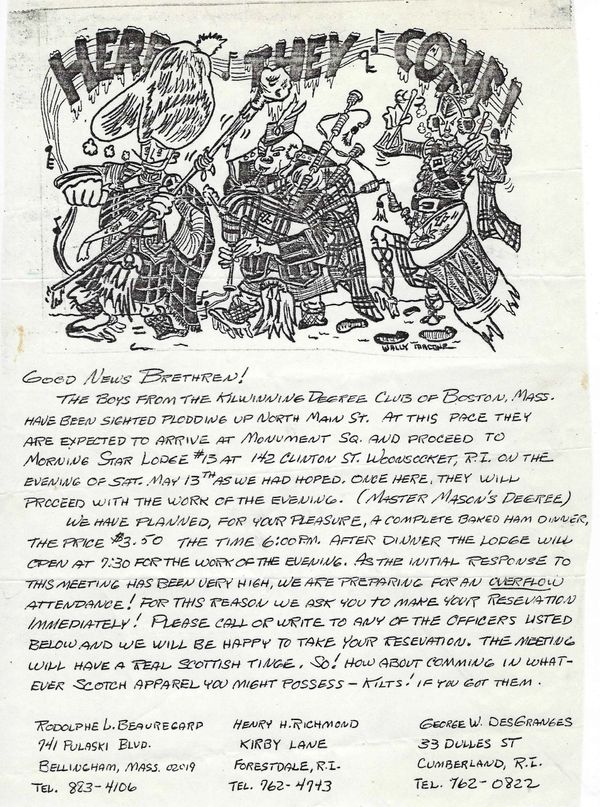 HERE THEY COME!
WALLY
GOOD NEWS BRETHREN!
THE BOYS FROM THE KILWINNING DEGREE CLUB OF BOSTON, MASS.
HAVE BEEN SIGHTED PLODDING UP NORTH MAIN ST. AT THIS PACE THEY
ARE EXPECTED TO ARRIVE AT MONUMENT SQ. AND PROCEED TO
MORNING STAR LODGE #13 AT 142 CLINTON ST. WOONSOCKET, R.I. ON THE
EVENING OF SAT. MAY 13TH AS WE HAD HOPED. ONCE HERE, THEY WILL
PROCEED WITH THE WORK OF THE EVENING. (MASTER MASON'S DEGREE)
WE HAVE PLANNED, FOR YOUR PLEASURE, A COMPLETE BAKED HAM DINNER,
THE PRICE $3.50 THE TIME 6:00 PM. AFTER DINNER THE LODGE WILL
OPEN AT 7:30 FOR THE WORK OF THE EVENING. AS THE INITIAL RESPONSE TO
THIS MEETING HAS BEEN VERY HIGH, WE ARE PREPARING FOR AN OVERFLOW
ATTENDANCE! FOR THIS REASON WE ASK YOU TO MAKE YOUR RESEVATION
IMMEDIATELY! PLEASE CALL OR WRITE TO ANY OF THE OFFICERS LISTED
BELOW AND WE WILL BE HAPPY TO TAKE YOUR RESEVATION. THE MEETING
WILL HAVE A REAL SCOTTISH TINGE. SO! HOW ABOUT COMMING IN WHAT-
EVER SCOTCH APPAREL YOU MIGHT POSSESS - KILTS! IF YOU GOT THEM.
RODOLPHE L. BEAUREGARD
741 PULASKI BLVD.
BELLINGHAM, MASS. 02019
TEL. 883-4106
HENRY H. RICHMOND
KIRBY LANE
FORESTDALE, R.I.
TEL. 762-4743
GEORGE W. DESGRANGES
33 DULLES ST
CUMBERLAND, R.I.
TEL. 762-0822